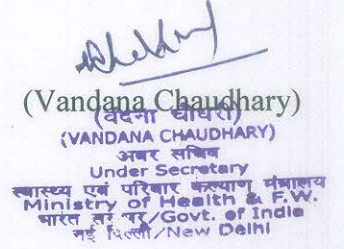 (Vandana Chaudhary)
(वंदना चौधरी)
(VANDANA CHAUDHARY)
अवर सचिव
Under Secretary
स्वास्थ्य एवं परिवार कल्याण मंत्रालय
Ministry of Health & F.W.
भारत सरकार/Govt. of India
नई दिल्ली/New Delhi